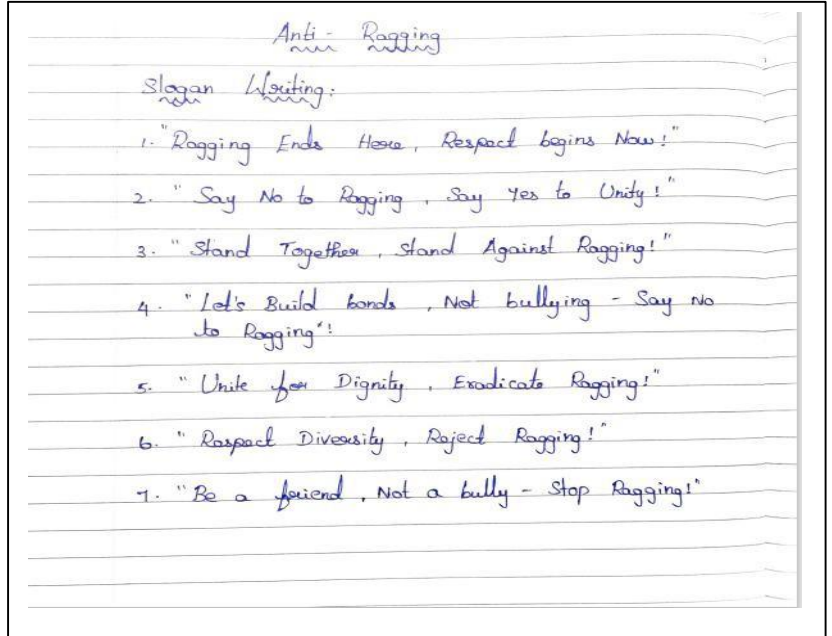 Anti - Ragging
Slogan Writing:
1. "Ragging Ends Here, Respect begins Now!"
2. "Say No to Ragging, Say Yes to Unity!"
3. "Stand Together, Stand Against Ragging!"
4. "Let's Build bonds, Not bullying - Say No
to Ragging"!
5. "Unite for Dignity, Eradicate Ragging!"
6. "Respect Diversity, Reject Ragging!"
7. "Be a friend, Not a bully - Stop Ragging!"